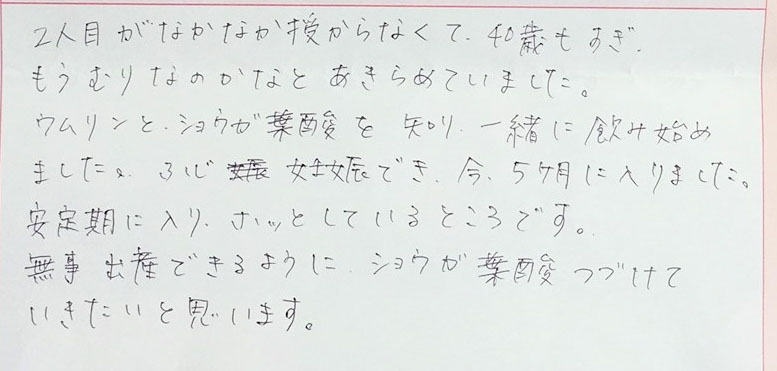 2人目がなかなか授からなくて、40歳もすぎ、
もうむりなのかなとあきらめていました。
ウムリンと、ショウガ葉酸を知り、一緒に飲み始め
ました。ぶじ 妊娠でき、今、5ヶ月に入りました。
安定期に入り、ホッとしているところです。
無事出産できるように、ショウガ葉酸つづけて
いきたいと思います。